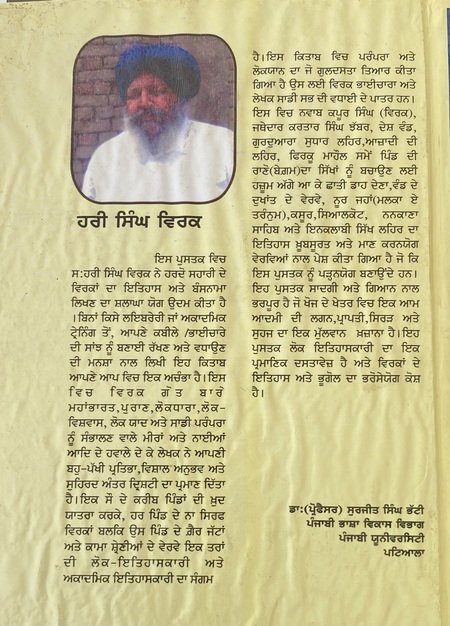 ਹਰੀ ਸਿੰਘ ਵਿਰਕ
ਇਸ ਪੁਸਤਕ ਵਿਚ
ਸ:ਹਰੀ ਸਿੰਘ ਵਿਰਕ ਨੇ ਹਰਦੇ ਸਹਾਰੀ ਦੇ
ਵਿਰਕਾਂ ਦਾ ਇਤਿਹਾਸ ਅਤੇ ਬੰਸਨਾਮਾ
ਲਿਖਣ ਦਾ ਸ਼ਲਾਘਾ ਯੋਗ ਉਦਮ ਕੀਤਾ ਹੈ
।ਬਿਨਾਂ ਕਿਸੇ ਲਇਬਰੇਰੀ ਜਾਂ ਅਕਾਦਮਿਕ
ਟ੍ਰੇਨਿੰਗ ਤੋਂ, ਆਪਣੇ ਕਬੀਲੇ /ਭਾਈਚਾਰੇ
ਦੀ ਸਾਂਝ ਨੂੰ ਬਣਾਈ ਰੱਖਣ ਅਤੇ ਵਧਾਉਣ
ਦੀ ਮਨਸ਼ਾ ਨਾਲ ਲਿਖੀ ਇਹ ਕਿਤਾਬ
ਆਪਣੇ ਆਪ ਵਿਚ ਇਕ ਅਚੰਭਾ ਹੈ।ਇਸ
ਵਿਚ ਵਿਰਕ ਗੋਤ ਬਾਰੇ
ਮਹਾਂਭਾਰਤ,ਪੁਰਾਣ,ਲੋਕਧਾਰਾ,ਲੋਕ-
ਵਿਸ਼ਵਾਸ, ਲੋਕ ਯਾਦ ਅਤੇ ਸਾਡੀ ਪਰੰਪਰਾ
ਨੂੰ ਸੰਭਾਲਣ ਵਾਲੇ ਮੀਰਾਂ ਅਤੇ ਨਾਈਆਂ
ਆਦਿ ਦੇ ਹਵਾਲੇ ਦੇ ਕੇ ਲੇਖਕ ਨੇ ਆਪਣੀ
ਬਹੁ-ਪੱਖੀ ਪ੍ਰਤਿਭਾ,ਵਿਸ਼ਾਲ ਅਨੁਭਵ ਅਤੇ
ਸੁਹਿਰਦ ਅੰਤਰ ਦ੍ਰਿਸ਼ਟੀ ਦਾ ਪ੍ਰਮਾਣ ਦਿੱਤਾ
ਹੈ।ਇਕ ਸੌ ਦੇ ਕਰੀਬ ਪਿੰਡਾਂ ਦੀ ਖ਼ੁਦ
ਯਾਤਰਾ ਕਰਕੇ, ਹਰ ਪਿੰਡ ਦੇ ਨਾ ਸਿਰਫ
ਵਿਰਕਾਂ ਬਲਕਿ ਉਸ ਪਿੰਡ ਦੇ ਗ਼ੈਰ ਜੱਟਾਂ
ਅਤੇ ਕਾਮਾ ਸ਼੍ਰੇਣੀਆਂ ਦੇ ਵੇਰਵੇ ਇਕ ਤਰਾਂ
ਦੀ ਲੋਕ-ਇਤਿਹਾਸਕਾਰੀ ਅਤੇ
ਅਕਾਦਮਿਕ ਇਤਿਹਾਸਕਾਰੀ ਦਾ ਸੰਗਮ
ਹੈ।ਇਸ ਕਿਤਾਬ ਵਿਚ ਪਰੰਪਰਾ ਅਤੇ
ਲੋਕਯਾਨ ਦਾ ਜੋ ਗੁਲਦਸਤਾ ਤਿਆਰ ਕੀਤਾ
ਗਿਆ ਹੈ ਉਸ ਲਈ ਵਿਰਕ ਭਾਈਚਾਰਾ ਅਤੇ
ਲੇਖਕ ਸਾਡੀ ਸਭ ਦੀ ਵਧਾਈ ਦੇ ਪਾਤਰ ਹਨ।
ਇਸ ਵਿਚ ਨਵਾਬ ਕਪੂਰ ਸਿੰਘ (ਵਿਰਕ),
ਜਥੇਦਾਰ ਕਰਤਾਰ ਸਿੰਘ ਝੱਬਰ, ਦੇਸ਼ ਵੰਡ,
ਗੁਰਦੁਆਰਾ ਸੁਧਾਰ ਲਹਿਰ,ਆਜ਼ਾਦੀ ਦੀ
ਲਹਿਰ, ਫਿਰਕੂ ਮਾਹੌਲ ਸਮੇਂ ਪਿੰਡ ਦੀ
ਰਾਣੋ(ਬੇਗ਼ਮ)ਦਾ ਸਿੱਖਾਂ ਨੂੰ ਬਚਾਉਣ ਲਈ
ਹਜ਼ੂਮ ਅੱਗੇ ਆ ਕੇ ਛਾਤੀ ਡਾਹ ਦੇਣਾ,ਵੰਡ ਦੇ
ਦੁਖਾਂਤ ਦੇ ਵੇਰਵੇ, ਨੂਰ ਜਹਾਂ(ਮਲਕਾ ਏ
ਤਰੰਨੁਮ),ਕਸੂਰ,ਸਿਆਲਕੋਟ, ਨਨਕਾਣਾ
ਸਾਹਿਬ ਅਤੇ ਇਨਕਲਾਬੀ ਸਿੱਖ ਲਹਿਰ ਦਾ
ਇਤਿਹਾਸ ਖ਼ੂਬਸੂਰਤ ਅਤੇ ਮਾਣ ਕਰਨਯੋਗ
ਵੇਰਵਿਆਂ ਨਾਲ ਪੇਸ਼ ਕੀਤਾ ਗਿਆ ਹੈ ਜੋ ਕਿ
ਇਸ ਪੁਸਤਕ ਨੂੰ ਪੜ੍ਹਨਯੋਗ ਬਣਾਉਂਦੇ ਹਨ।
ਇਹ ਪੁਸਤਕ ਸਾਦਗੀ ਅਤੇ ਗਿਆਨ ਨਾਲ
ਭਰਪੂਰ ਹੈ ਜੋ ਖੋਜ ਦੇ ਖੇਤਰ ਵਿਚ ਇਕ ਆਮ
ਆਦਮੀ ਦੀ ਲਗਨ,ਪ੍ਰਾਪਤੀ,ਸਿਰੜ ਅਤੇ
ਸੁਹਜ ਦਾ ਇਕ ਮੁੱਲਵਾਨ ਖ਼ਜ਼ਾਨਾ ਹੈ।ਇਹ
ਪੁਸਤਕ ਲੋਕ ਇਤਿਹਾਸਕਾਰੀ ਦਾ ਇਕ
ਪ੍ਰਮਾਣਿਕ ਦਸਤਾਵੇਜ਼ ਹੈ ਅਤੇ ਵਿਰਕਾਂ ਦੇ
ਇਤਿਹਾਸ ਅਤੇ ਭੂਗੋਲ ਦਾ ਭਰੋਸੇਯੋਗ ਕੋਸ਼
ਹੈ।
ਡਾ:(ਪ੍ਰੋਫੈਸਰ) ਸੁਰਜੀਤ ਸਿੰਘ ਭੱਟੀ
ਪੰਜਾਬੀ ਭਾਸ਼ਾ ਵਿਕਾਸ ਵਿਭਾਗ
ਪੰਜਾਬੀ ਯੂਨੀਵਰਸਿਟੀ
ਪਟਿਆਲਾ